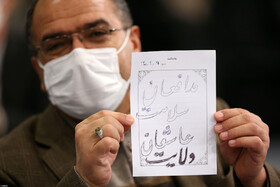 مدافعان
سلامت
عاشقان
ولایت